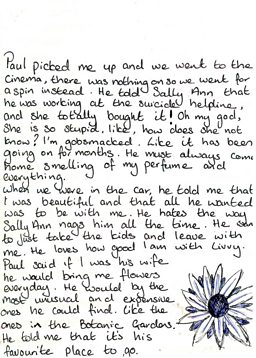 Paul picked me up and we went to the
cinema, there was nothing on so we went for
a spin instead. He told Sally Ann that
he was working at the suicide helpline,
and she totally bought it! Oh my god,
She is so stupid, like, how does she not
know? I'm gobsmacked. Like it has been
going on for months. He must always come
home smelling of my perfume and
everything.
When we were in the car, he told me that
I was beautiful and that all he wanted
was to be with me. He hates the way
Sally Ann nags him all the time. He
to just take the kids and leave with
me. He loves how good I am with Livvy.
Paul said if I was his wife
he would bring me flowers
everyday. He would by the
most unusual and expensive
ones he could find. Like the
ones in the Botanic Gardens.
He told me that it's his
favourite place to go.